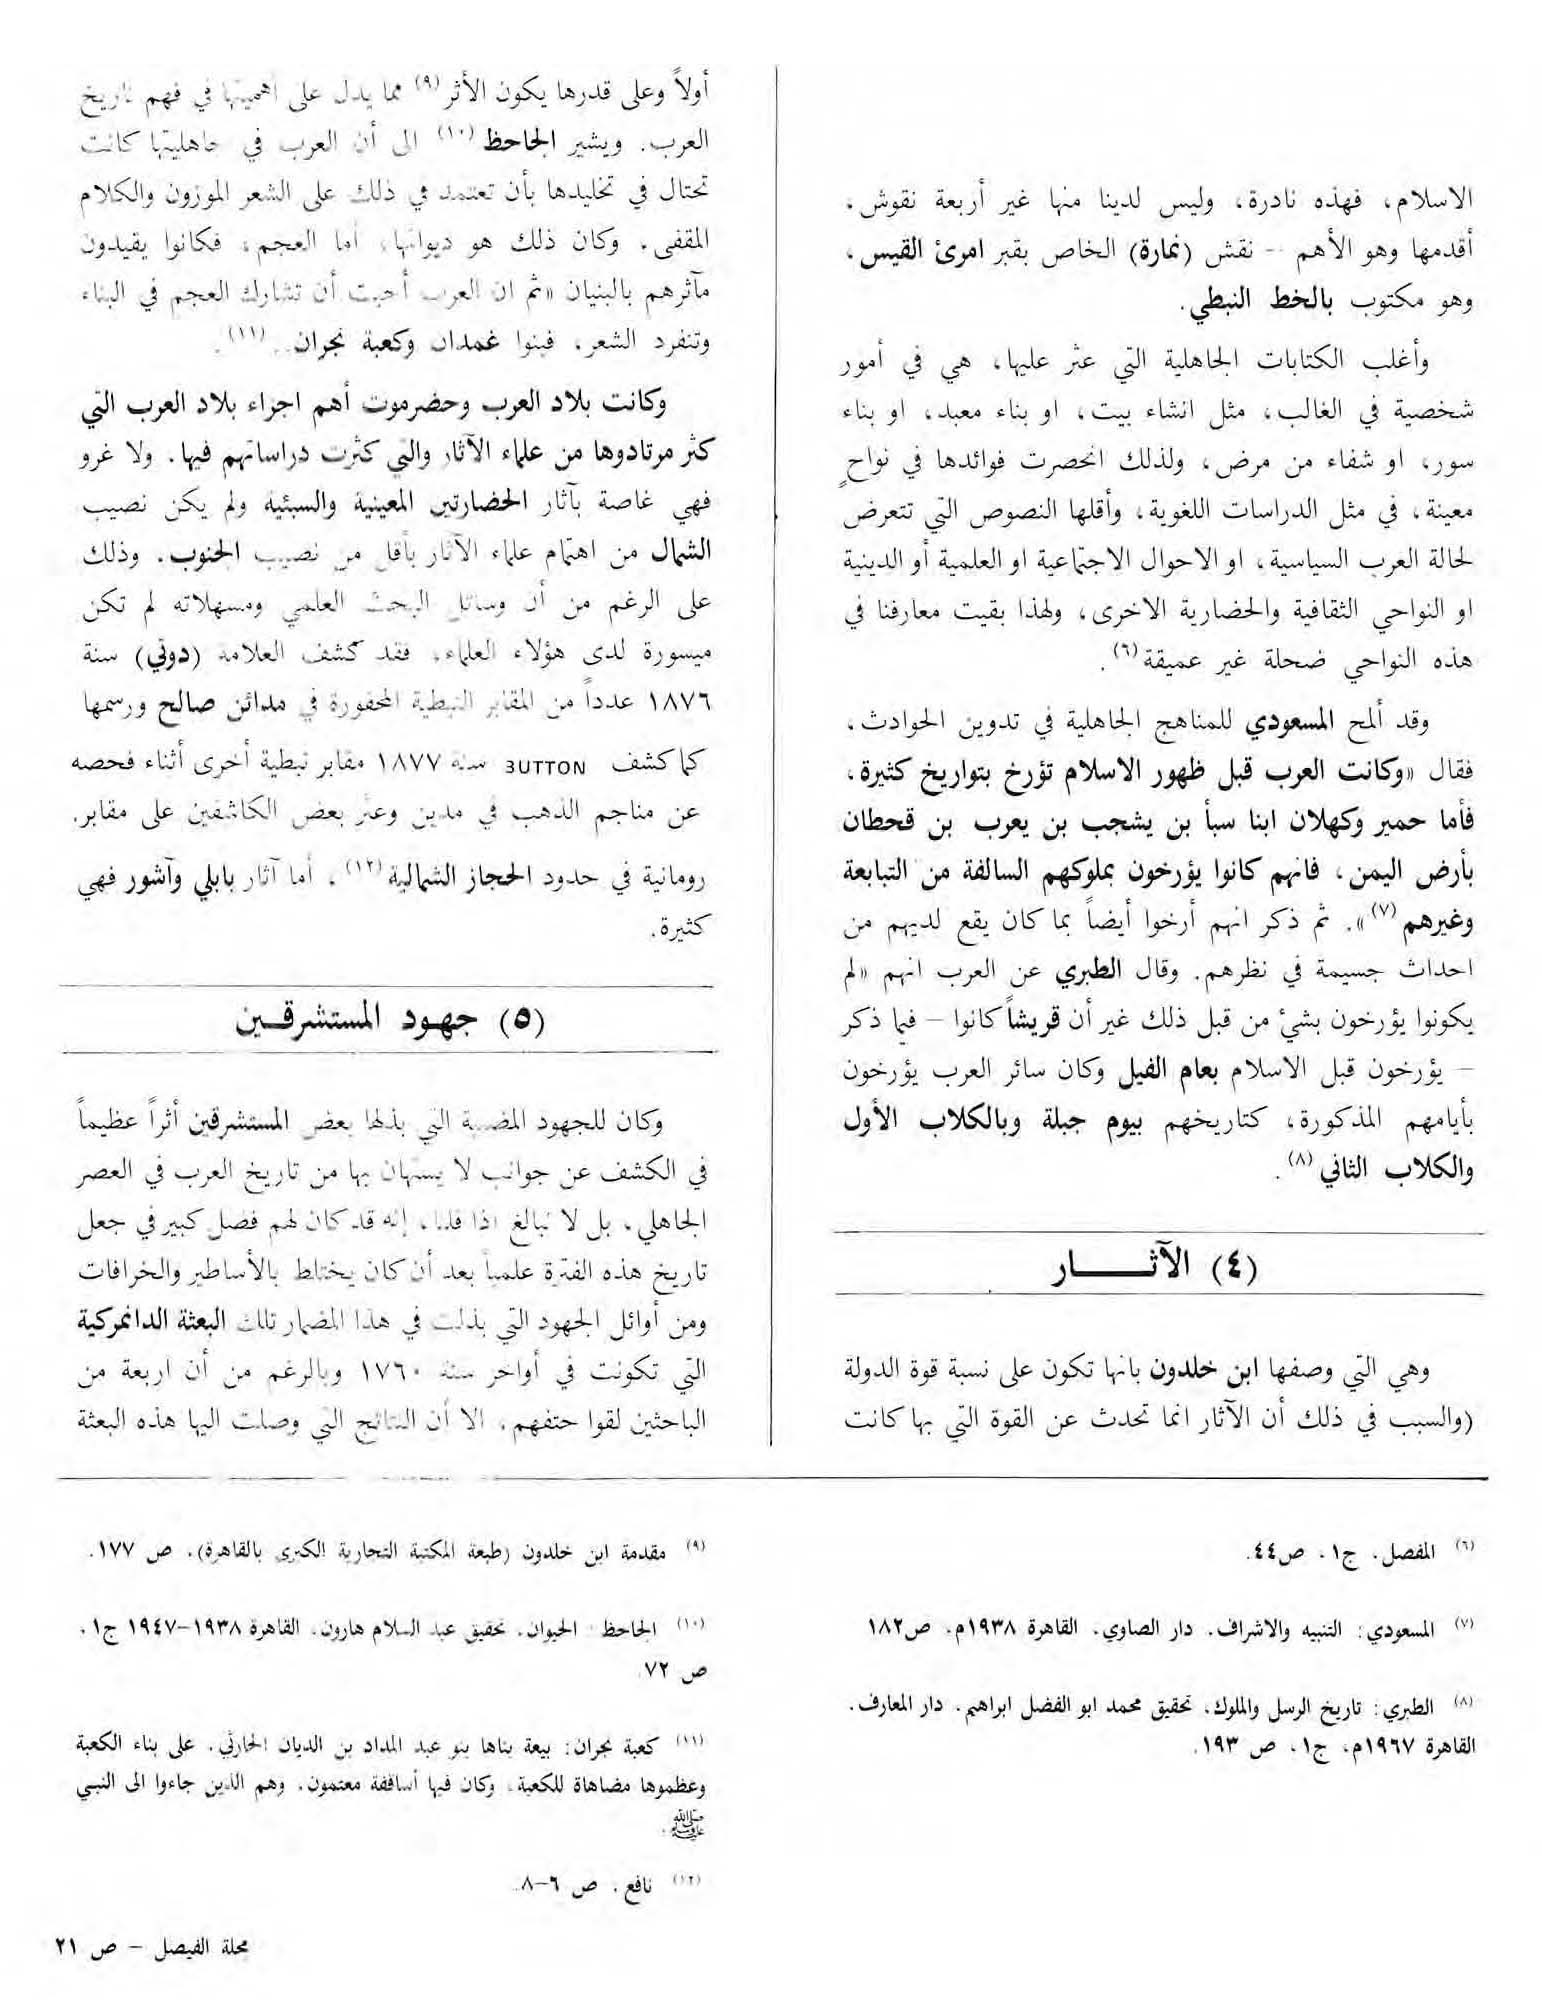 الاسلام، فهذه نادرة، وليس لدينا منها غير أربعة نقوش،
أقدمها وهو الأهم -- نقش (نمارة) الخاص بقبر امرئ القيس،
وهو مكتوب بالخط النبطي.
وأغلب الكتابات الجاهلية التي عثر عليها، هي في أمور
شخصية في الغالب، مثل انشاء بيت، او بناء معبد، او بناء
سور، او شفاء من مرض، ولذلك انحصرت فوائدها في نواحٍ
معينة، في مثل الدراسات اللغوية، وأقلها النصوص التي تتعرض
لحالة العرب السياسية، او الاحوال الاجتماعية او العلمية أو الدينية
او النواحي الثقافية والحضارية الاخرى، ولهذا بقيت معارفنا في
هذه النواحي ضحلة غير عميقة(٦).
وقد ألمح المسعودي للمناهج الجاهلية في تدوين الحوادث،
فقال «وكانت العرب قبل ظهور الاسلام تؤرخ بتواريخ كثيرة،
فأما حمير وكهلان ابنا سبأ بن يشجب بن يعرب بن قحطان
بأرض اليمن، فانهم كانوا يؤرخون بملوكهم السالفة من التبابعة
وغيرهم(٧)». ثم ذكر انهم أرخوا أيضاً بما كان يقع لديهم من
احداث جسيمة في نظرهم. وقال الطبري عن العرب انهم «لم
يكونوا يؤرخون بشئ من قبل ذلك غير أن قريشاً كانوا – فيما ذكر
– يؤرخون قبل الاسلام بعام الفيل وكان سائر العرب يؤرخون
بأيامهم المذكورة، كتاريخهم بيوم جبلة وبالكلاب الأول
والكلاب الثاني(٨).
(٤) الآثـــــار
وهي التي وصفها ابن خلدون بانها تكون على نسبة قوة الدولة
(والسبب في ذلك أن الآثار انما تحدث عن القوة التي بها كانت
أولاً وعلى قدرها يكون الأثر(٩) مما يدل على أهميتها في فهم تاريخ
العرب. ويشير الجاحظ(١٠) الى أن العرب في جاهليتها كانت
تحتال في تخليدها بأن تعتمد في ذلك على الشعر الموزون والكلام
المقفى. وكان ذلك هو ديوانها، أما العجم، فكانوا يقيدون
مآثرهم بالبنيان «ثم ان العرب أحبت أن تشارك العجم في البناء
وتنفرد الشعر، فبنوا غمدان وكعبة نجران..(١١).
وكانت بلاد العرب وحضرموت أهم اجزاء بلاد العرب التي
كثر مرتادوها من علماء الآثار والتي كثرت دراساتهم فيها. ولا غرو
فهي غاصة بآثار الحضارتين المعينية والسبئية ولم يكن نصيب
الشمال من اهتمام علماء الآثار بأقل من نصيب الجنوب. وذلك
على الرغم من أن وسائل البحث العلمي ومسهلاته لم تكن
ميسورة لدى هؤلاء العلماء، فقد كشف العلامة (دوتي) سنة
١٨٧٦ عدداً من المقابر النبطية المحفورة في مدائن صالح ورسمها
كما كشف 3UTTON سنة ١٨٧٧ مقابر نبطية أخرى أثناء فحصه
عن مناجم الذهب في مدين وعثر بعض الكاشفين على مقابر.
رومانية في حدود الحجاز الشمالية(١٢)، أما آثار بابلي وآشور فهي
كثيرة.
(٥) جهـود المستشرقـين
وكان للجهود المضنية التي بذلها بعض المستشرقين أثراً عظيماً
في الكشف عن جوانب لا يستهان بها من تاريخ العرب في العصر
الجاهلي، بل لا نبالغ اذا قلنا، إنه قد كان لهم فضل كبير في جعل
تاريخ هذه الفترة علمياً بعد أن كان يختلط بالأساطير والخرافات
ومن أوائل الجهود التي بذلت في هذا المضمار تلك البعثة الدانمركية
التي تكونت في أواخر سنة ١٧٦٠ وبالرغم من أن اربعة من
الباحثين لقوا حتفهم، الا أن النتائج التي وصلت اليها هذه البعثة
(٦) المفصل، ج١، ص٤٤.
(٧) المسعودي: التنبيه والاشراف، دار الصاوي، القاهرة ١٩٣٨م، ص١٨٢
(٨) الطبري: تاريخ الرسل والملوك، تحقيق محمد ابو الفضل ابراهيم، دار المعارف،
القاهرة ١٩٦٧م، ج١، ص ١٩٣.
(٩) مقدمة ابن خلدون (طبعة المكتبة التجارية الكبرى بالقاهرة)، ص ١٧٧.
(١٠) الجاحظ: الحيوان، تحقيق عبد السلام هارون، القاهرة ١٩٣٨–١٩٤٧ ج١،
ص ٧٢.
(١١) كعبة نجران: بيعة بناها بنو عبد المداد بن الديان الحارثي، على بناء الكعبة
وعظموها مضاهاة للكعبة، وكان فيها أساقفة معتمون، وهم الذين جاءوا الى النبي
ﷺ.
(١٢) نافع، ص ٦–٨.
مجلة الفيصل – ص ٢١